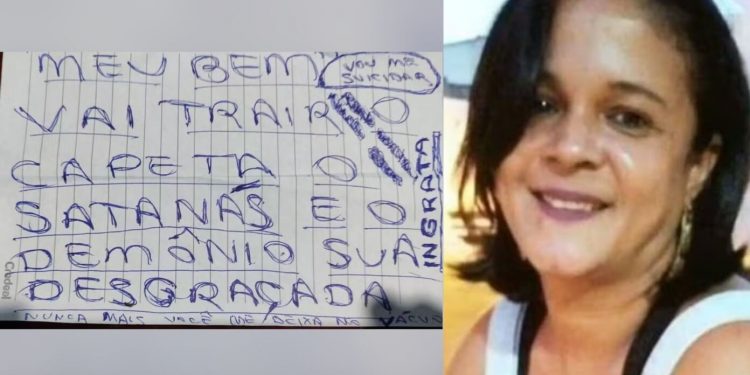 MEU BEM
VOU ME
SUICIDAR
VAI TRAIR O
CAPETA O
SATANÁS E O
DEMÔNIO SUA
DESGRAÇADA
INGRATA
NUNCA MAIS VOCÊ ME DEIXA NO VÁCUO